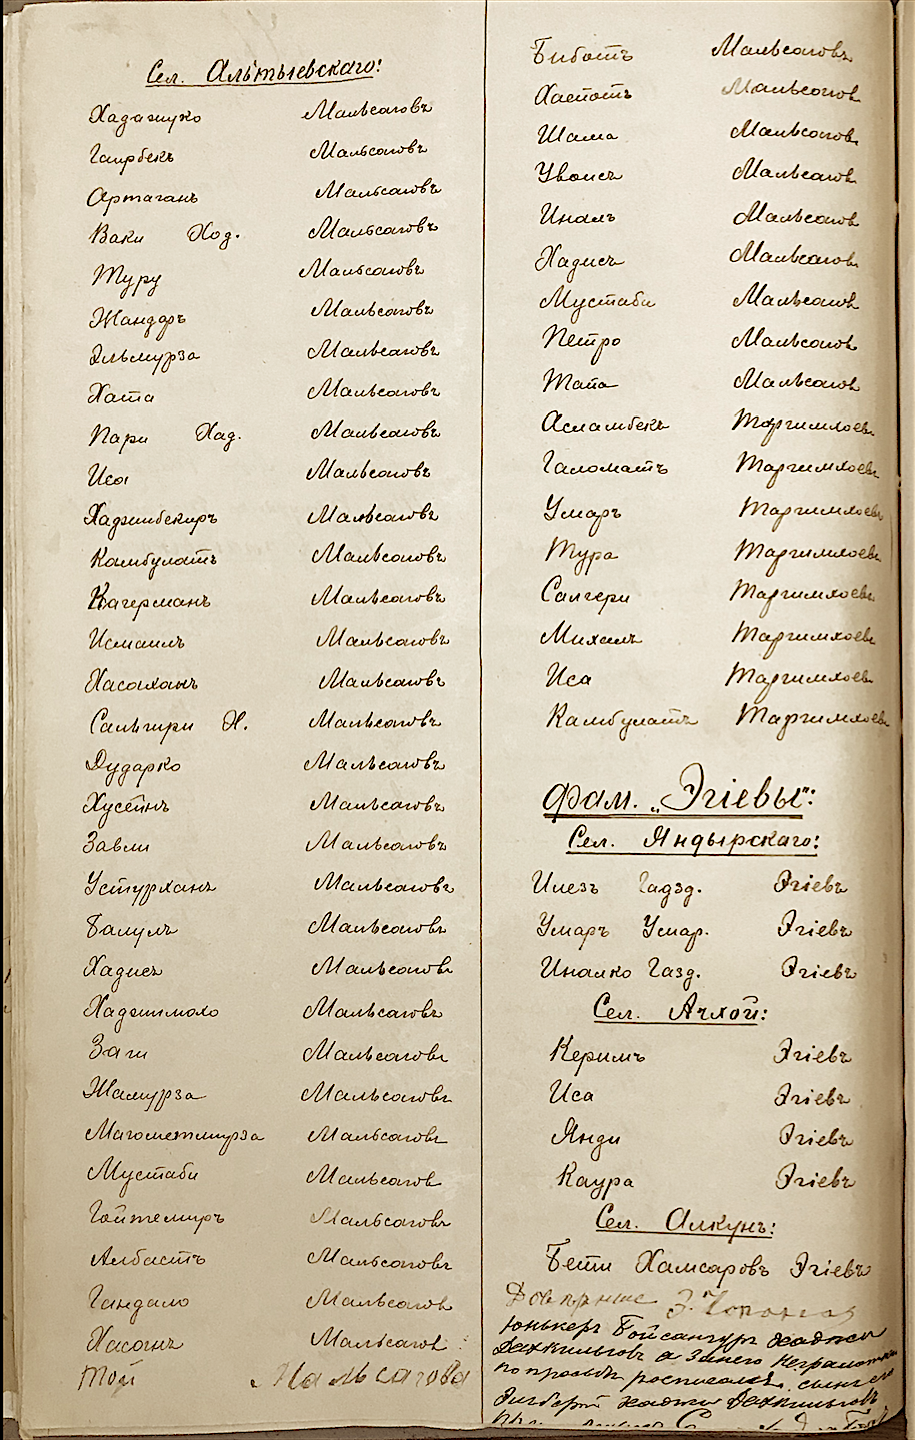 Сел. Альтыевскаго:
Хадажуко Мальсаговъ
Гаирбекъ Мальсаговъ
Артаганъ Мальсаговъ
Ваки Ход. Мальсаговъ
Туру Мальсаговъ
Жандаръ Мальсаговъ
Эльмурза Мальсаговъ
Хата Мальсаговъ
Пари Хад. Мальсаговъ
Иса Мальсаговъ
Хаджибекиръ Мальсаговъ
Камбулатъ Мальсаговъ
Кагерманъ Мальсаговъ
Исмаилъ Мальсаговъ
Хасоханъ Мальсаговъ
Сальгири Х. Мальсаговъ
Дударко Мальсаговъ
Хусейнъ Мальсаговъ
Завли Мальсаговъ
Устурханъ Мальсаговъ
Галулъ Мальсаговъ
Хадисъ Мальсаговъ
Хаджимохо Мальсаговъ
Заги Мальсаговъ
Жамурза Мальсаговъ
Магометмурза Мальсаговъ
Мустаби Мальсаговъ
Гойтемиръ Мальсаговъ
Албастъ Мальсаговъ
Гандало Мальсаговъ
Хасанъ Мальсаговъ
Той Мальсагова
Биботъ Мальсаговъ
Хаспотъ Мальсаговъ
Шама Мальсаговъ
Увоисъ Мальсаговъ
Иналъ Мальсаговъ
Хадисъ Мальсаговъ
Мустаби Мальсаговъ
Петро Мальсаговъ
Тата Мальсаговъ
Асламбекъ Таргимхоевъ
Галоматъ Таргимхоевъ
Умаръ Таргимхоевъ
Тура Таргимхоевъ
Салгери Таргимхоевъ
Михаилъ Таргимхоевъ
Иса Таргимхоевъ
Камбулатъ Таргимхоевъ
Фам. „Эгіевы":
Сел. Яндырскаго:
Илезъ Гадзд. Эгіевъ
Умаръ Умар. Эгіевъ
Иналко Газд. Эгіевъ
Сел. Ачхой:
Керимъ Эгіевъ
Иса Эгіевъ
Янди Эгіевъ
Каура Эгіевъ
Сел. Алкунъ:
Бети Хамсаровъ Эгіевъ
Юнкеръ Бойсангуръ хаджи
Дахкильговъ а за него неграмотн
по просьбѣ росписался сынъ его
хаджи Дахкильговъ